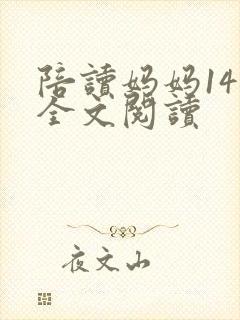 陪讀妈妈14
全文閱讀
夜文山